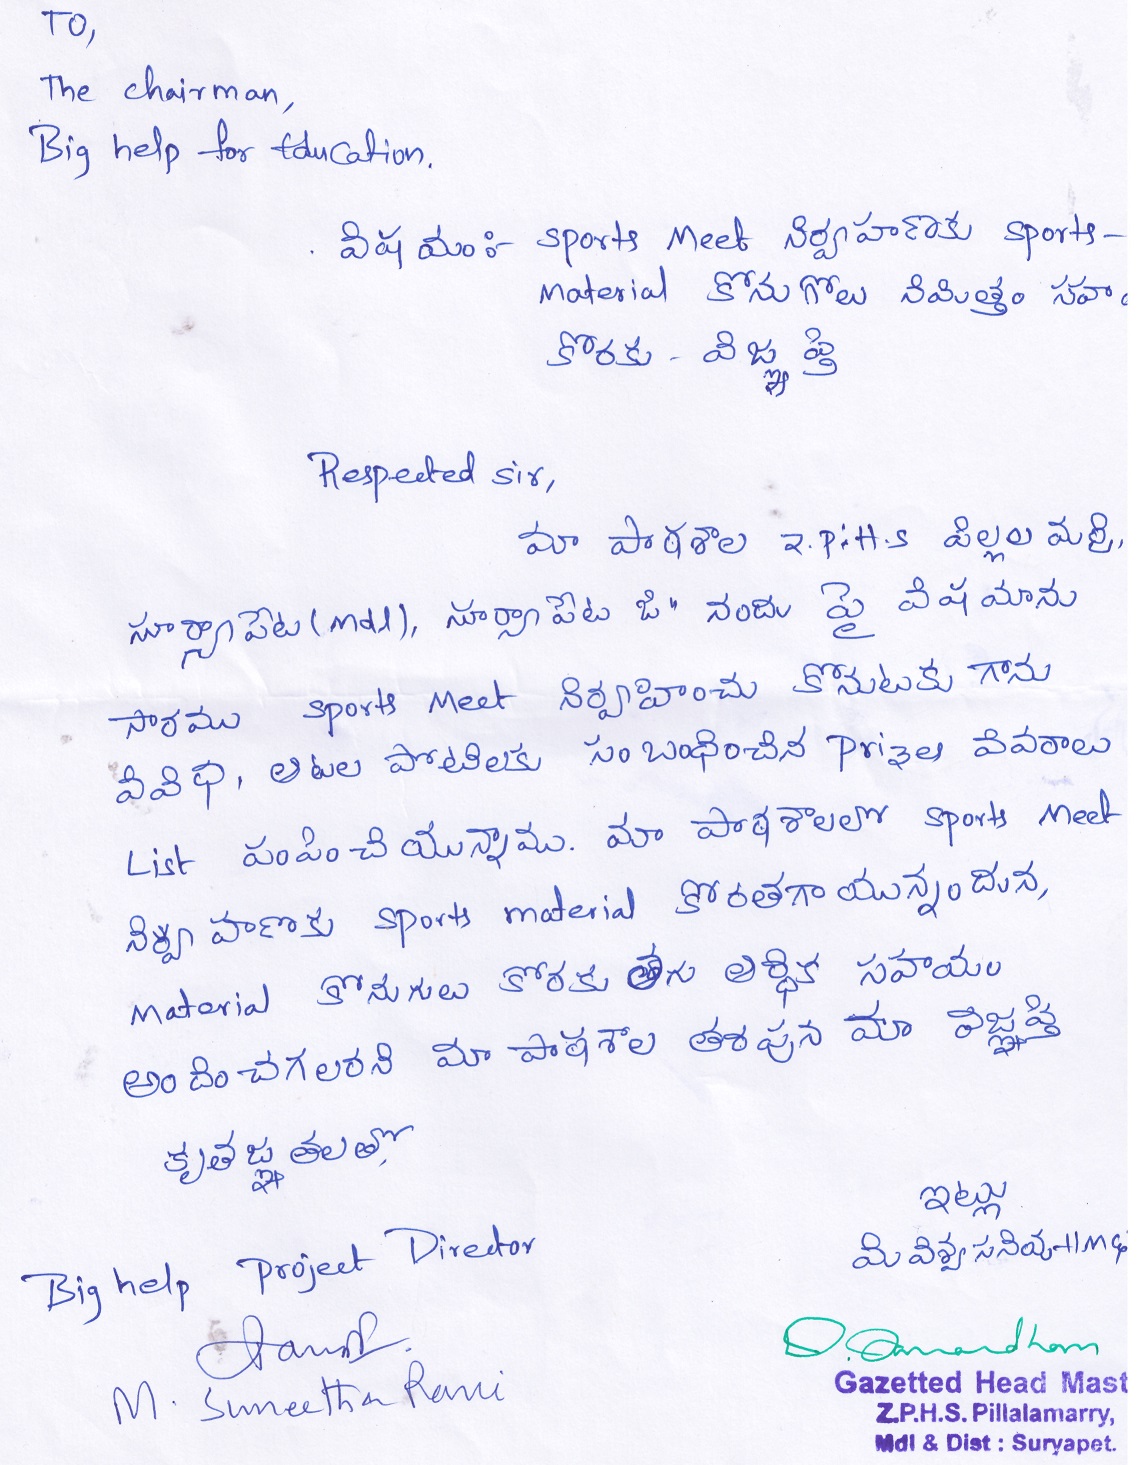 TO,
The chairman,
Big help for Education.
విషయం:- sports Meet నిర్వహణకు sports-
Material కోనుగోలు నిమిత్తం
కొరకు - విజ్ఞప్తి
Respected sir,
మా పాఠశాల Z.P.H.S పిల్లలమర్రి,
సూర్యాపేట(Mdl), సూర్యాపేట జి" నందు పై విషయాను
సారము sports Meet నిర్వహించు కోనుటకు గాను
వివిధ, ఆటల పోటిలకు సంబంధించిన Prizeల వివరాలు
List పంపించియున్నాము. మా పాఠశాలలో sports Meet
నిర్వహణకు sports material కోరతగా యున్నందున,
Material కోనుగులు కోరకు తగు ఆర్థిక సహాయం
అందించగలరని మా పాఠశాల తరపున మా విజ్ఞప్తి
కృతజ్ఞతలతో
ఇట్లు
మి విశ్వసనియ
Big help Project Director
M. Suneetha Rani
Gazetted Head Mast
Z.P.H.S. Pillalamarry,
Mdl & Dist : Suryapet.